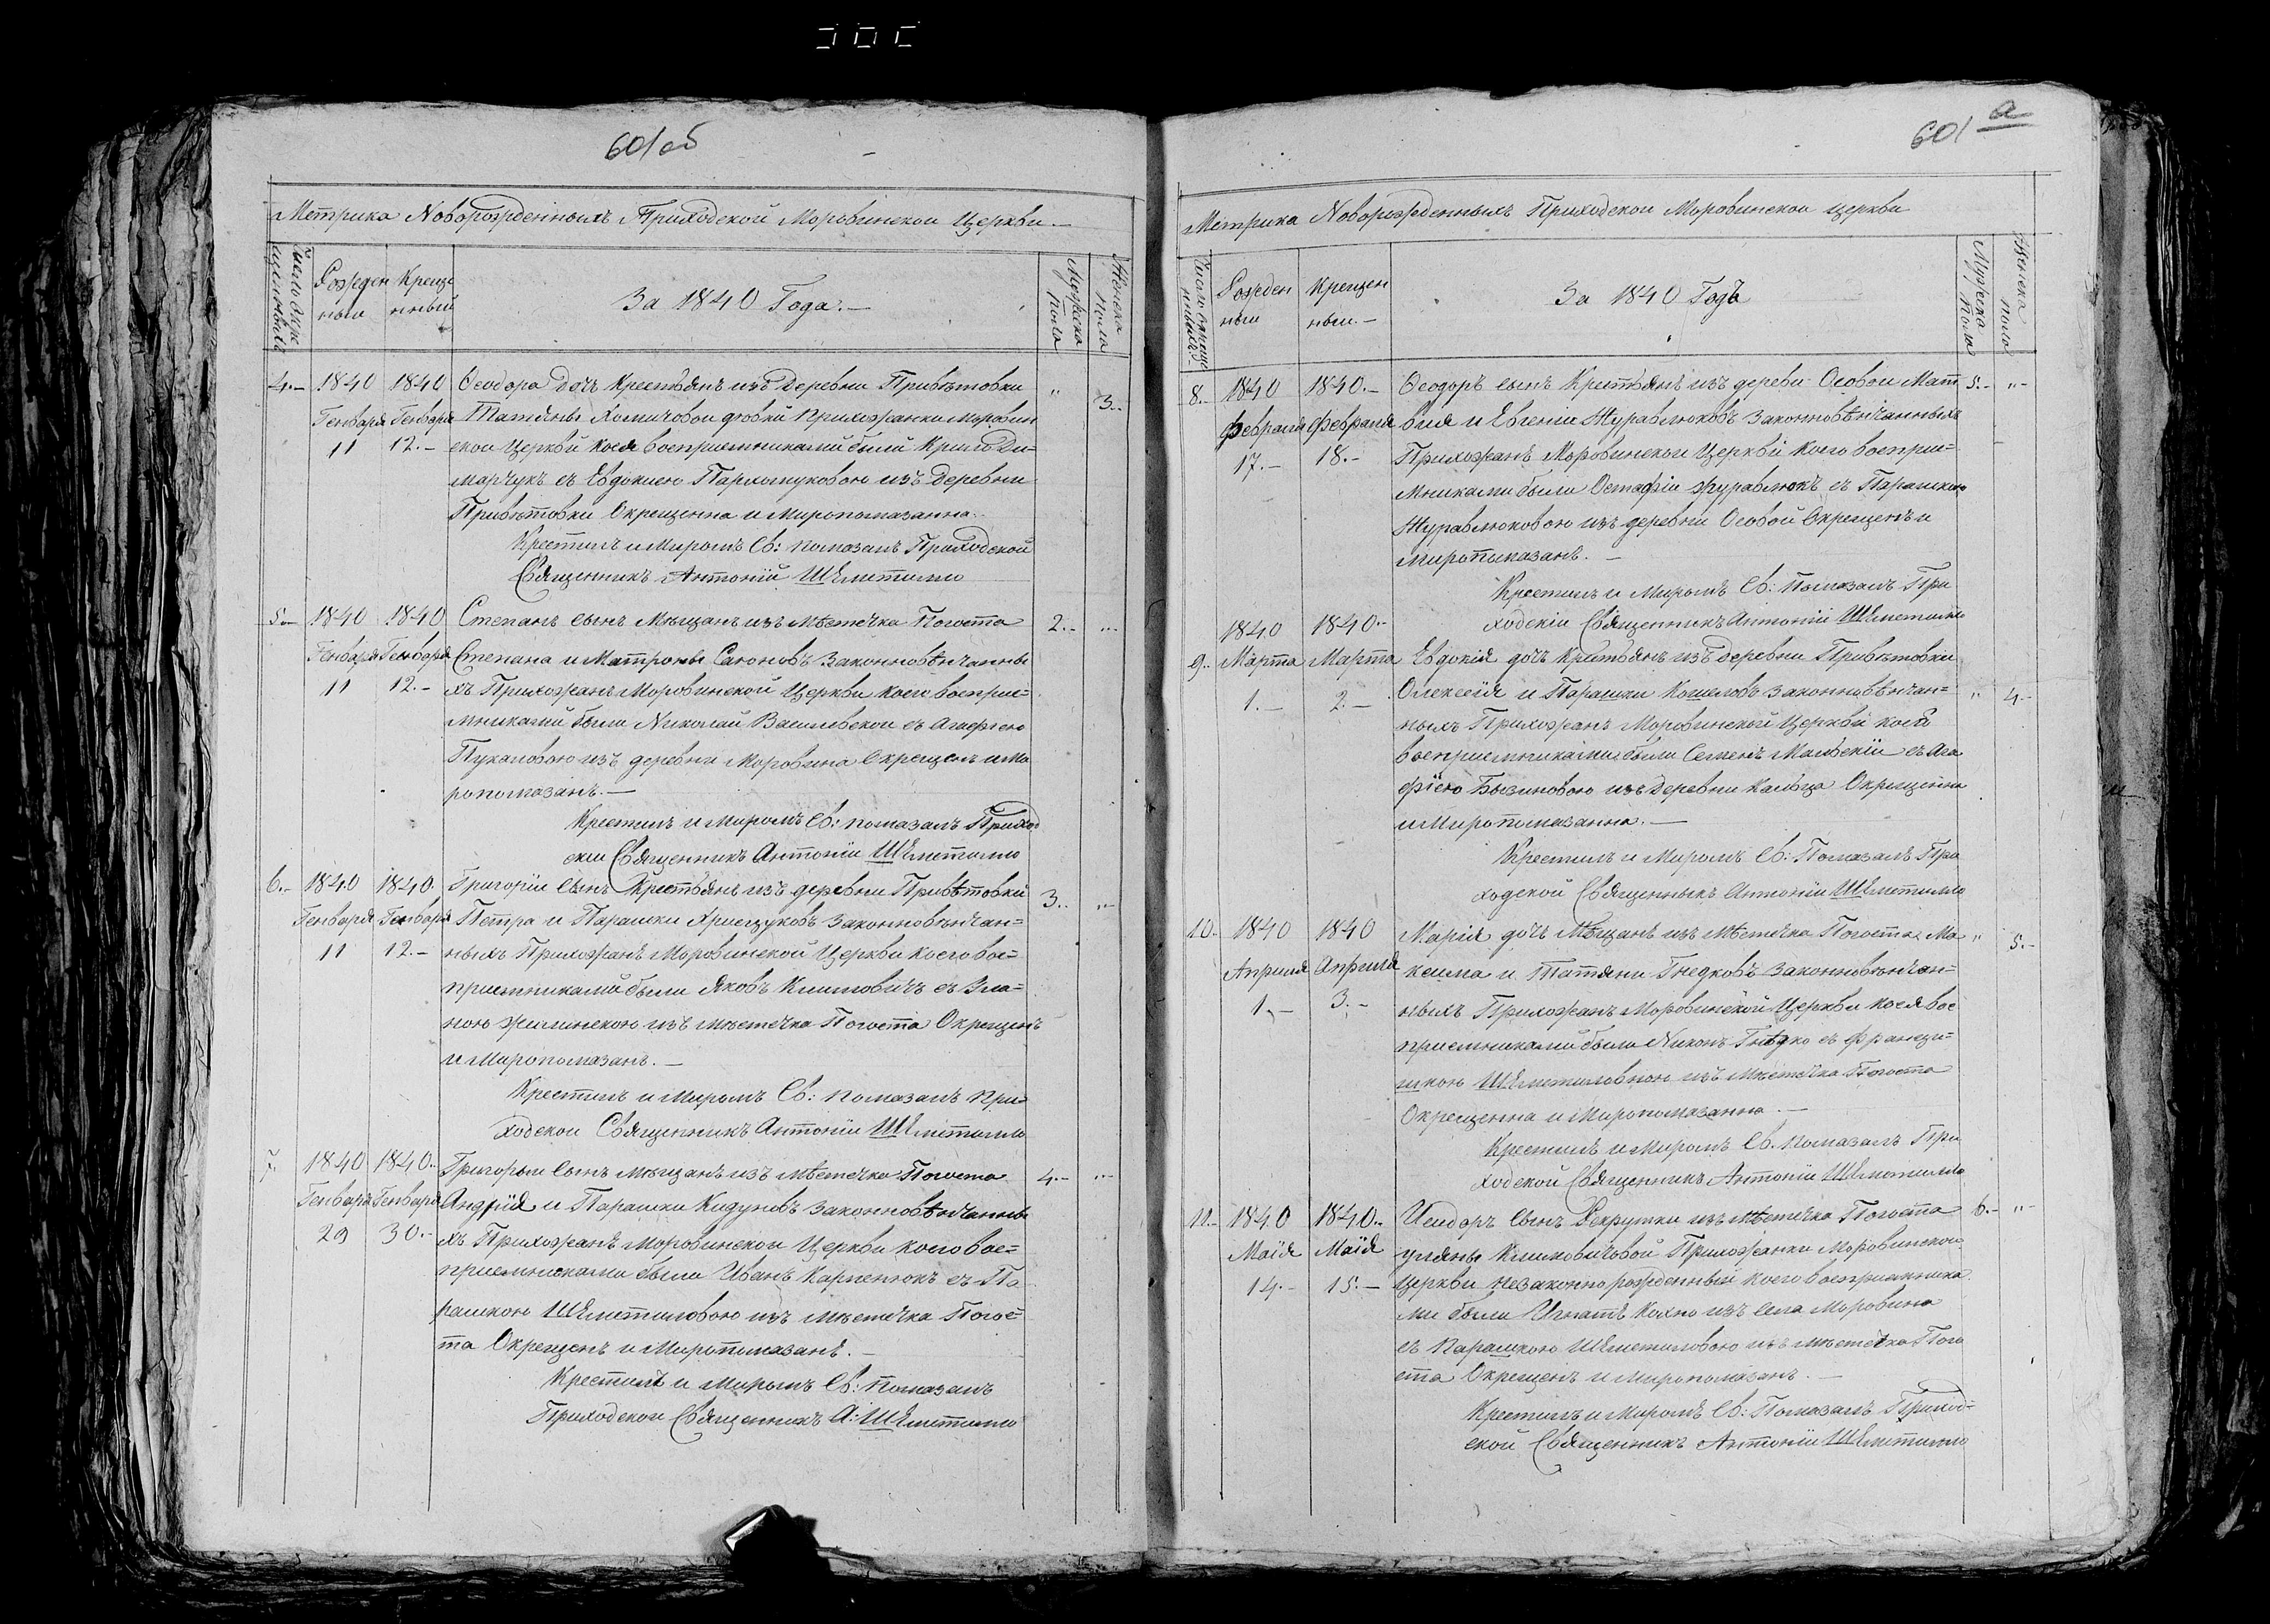 601об
Метрика Новорожденныхъ Приходской Моровинской Церкви.—
Число окре
щенныхъ
Рожден
ныи
Креще
нный
За 1840 Года.—
Мужска
пола
Женска
пола
4.— 1840 1840 Феодора дочь Крестьянъ изъ Деревни Привѣтовки " 3..
Генваря Генваря Татяны Хомичовои дѣвки Прихожанки Моровин
11 12.— скои Церквй коея восприемниками былй Крило Ди=
марчукъ съ Евдокиею Пархомуковою изъ Деревни
Привѣтовки Окрещенна и Миропомазанна.
Крестилъ и Миромъ Св: помазалъ Приходской
Священникъ Антонiй Шеметилло
5.— 1840 1840 Степанъ сынъ Мѣщанъ изъ Мѣстечка Погоста 2.. "
Генваря Генваря Степана и Матроны Саконовъ Законновѣнчанны
11 12.— хъ Прихожанъ Моровинской Церкви коего восприе=
мниками были Николай Василевской съ Агафiею
Пукановою изъ деревни Моровина Окрещенъ и Ми
ропомазанъ.—
Крестилъ и Миромъ Св: помазалъ Приход
скiи Священникъ Антонiи Шеметилло
6.— 1840 1840. Григорiи сынъ Крестьянъ изъ деревни Привѣтовки 3.. "
Генваря Генваря Петра и Парашки Хрищуковъ Законновѣнчан=
11 12.— ныхъ Прихожанъ Моровинской Церкви коего вос=
приемниками были Яковъ Климовичъ съ Уля=
ною Жилинскою изъ мѣстечка Погоста Окрещенъ
и Миропомазанъ.—
Крестилъ и Миромъ Св: помазалъ При
ходскои Священникъ Антонiи Шеметилло
7. 1840 1840.. Григорыи сынъ мѣщанъ изъ мѣстечка Погоста 4.— "
Генваря Генваря Андрiя и Парашки Кидуновъ Законновѣнчанны
29 30.— хъ Прихожанъ Моровинскои Церкви коего вос=
приемниками были Иванъ Карпенюкъ съ Па
рашкою Шеметиловою изъ мѣстечка Погос=
та Окрещенъ и Миропомазанъ.—
Крестилъ и Миромъ Св: Помазалъ
Приходскои Священникъ А: Шеметилло
601 а
Метрика Новорожденныхъ Приходскои Моровинскои церкви
Число окреще
нныхъ.—
Рожден
ныи
Крещен
ныи.—
За 1840 Годъ
Мужска
Пола
Женска
пола
8.. 1840 1840.— Феодоръ сынъ Крестьянъ изъ дереви Осовои Мат 5.— "
Февраля Февраля вия и Евгенiи Журавлюковъ Законновѣнчанныхъ
17.— 18.— Прихожанъ Моровинскои Церквй коего восприе=
мниками были Остафiи Журавлюкъ съ Парашкою
Журавлюковою изъ деревни Осовой Окрещенъ и
миропомазанъ.—
Крестилъ и Миромъ Св: Помазалъ При
ходскiи Священникъ Антонiи Шеметилло
1840 1840.—
9.. Марта Марта Евдокiя дочь Крестьянъ изъ Деревни Привѣтовки
1.— 2.— Олексѣя и Парашки Кошеловъ Законновѣнчан= " 4.—
ныхъ Прихожанъ Моровинской Церквй коея
восприемниками были Семенъ Малѣскiи съ Ага
фiею Бызиновою изъ Деревни Кальца Окрещенна
и Миропомазанна.—
Крестилъ и Миромъ Св: Помазалъ При
ходской Священныкъ Антонiи Шеметилло
10. 1840 1840 Марiя дочь Мѣщанъ изъ Мѣстечка Погоста Ма " 5.—
Априля Априля ксима и Татяни Гнедковъ Законновѣнчан=
1.— 3.— ныхъ Прихожанъ Моровинской Церкви коея вос
приемниками были Никонъ Гнѣдко съ Францы=
шкою Шеметиловною изъ Мѣстечка Погоста
Окрещенна и Миропомазанна.—
Крестилъ и Миромъ Св. помазалъ При
ходской Священникъ Антонiи Шеметилло
11.— 1840 1840.. Исидоръ Сынъ Рекрутки изъ Мѣстечка Погоста 6.— "
Маiя Маiя уляны Климовичовой Прихожанки Моровинскои
14.— 15.— Церкви незаконнорожденный коего восприемника
ми были Игнатъ Кохно изъ села Моровина
съ Парашкою Шеметиловою изъ мѣстечка Пого
ста Окрещенъ и Миропомазанъ.—
Крестилъ и Миромъ Св: Помазалъ Приход=
ской Священникъ Антонiи Шеметилло